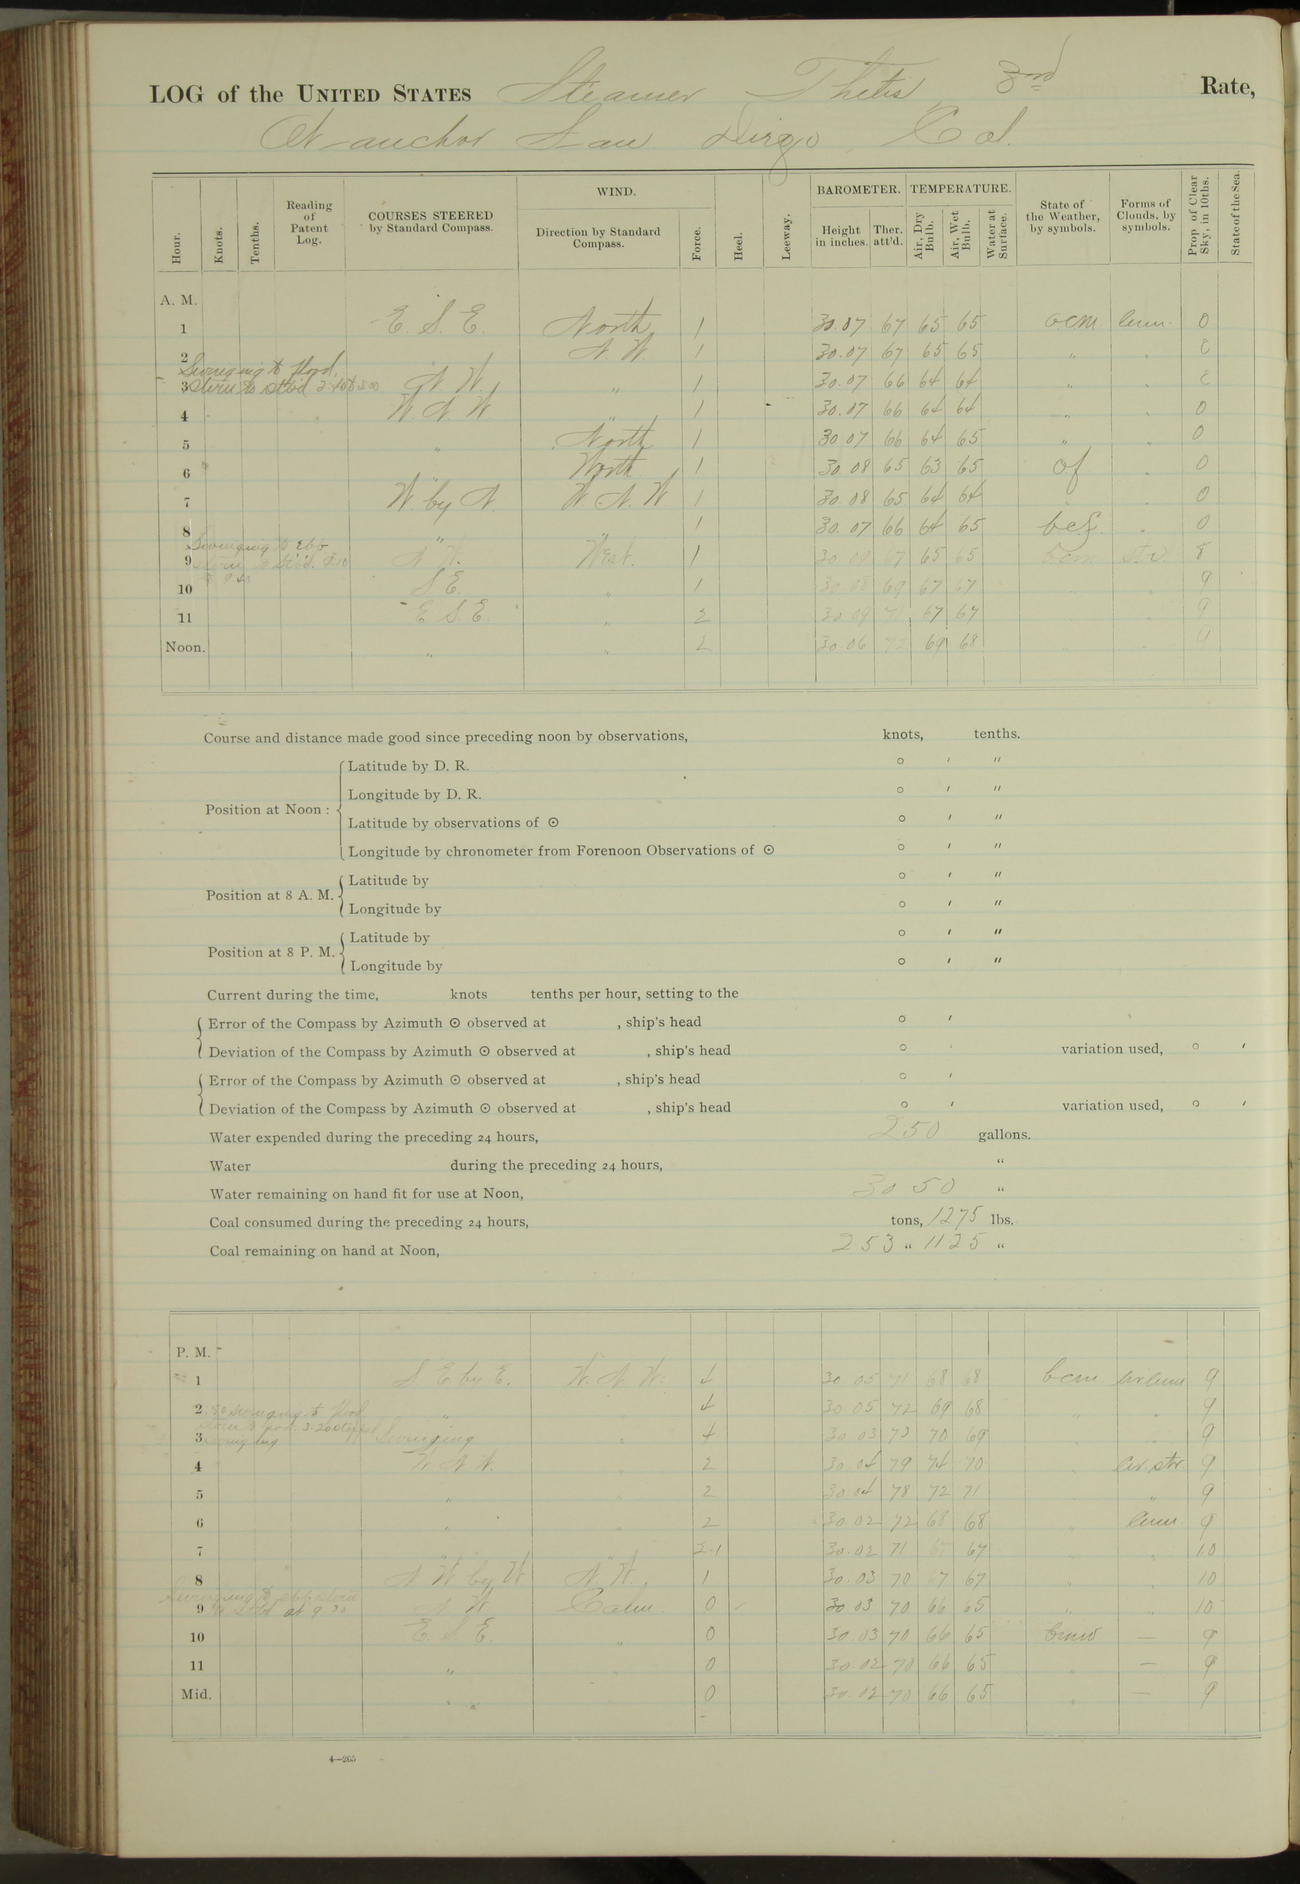 LOG of the UNITED STATES Steamer Thetis, 3rd Rate,
At anchor San Diego, Cal.
Hour. Knots. Tenths. Reading of Patent Log. COURSES STEERED by Standard Compass. WIND. Direction by Standard Compass. Force. Heel. Leeway. BAROMETER. Height in inches. Ther. att'd. TEMPERATURE. Air, Dry Bulb. Air, Wet Bulb. Water at Surface. State of the Weather, by symbols. Forms of Clouds, by symbols. Prop. of Clear Sky, in 10ths. State of the Sea.
A. M.
1 E. S. E. North 1 30.07 67 65 65 ocm 0
2 N. W. 1 30.07 67 65 65 "
Swinging to flood,
3 stern to stbd N. W. " 1 30.07 66 64 64 "
4 W. N. W " 1 30.07 66 64 64 " 0
5 " North 1 30.07 66 64 65 " 0
6 " North 1 30.08 65 63 65 of 0
7 W. by N. W. N. W 1 30.08 65 64 64 0
8 " " 1 30.07 66 64 65 0
Swinging to ebb
9 N. W. West. 1 67 65 65 str. 8
10 S E. " 1 30.08 69 67 67 9
11 E S. E. " 2 30.09 71 67 67 9
Noon. " " 2 30.06 72 69 68 9
Course and distance made good since preceding noon by observations, knots, tenths.
Position at Noon :
Latitude by D. R. ° ′ ″
Longitude by D. R. ° ′ ″
Latitude by observations of ⊙ ° ′ ″
Longitude by chronometer from Forenoon Observations of ⊙ ° ′ ″
Position at 8 A. M.
Latitude by ° ′ ″
Longitude by ° ′ ″
Position at 8 P. M.
Latitude by ° ′ ″
Longitude by ° ′ ″
Current during the time, knots tenths per hour, setting to the
Error of the Compass by Azimuth ⊙ observed at , ship's head ° ′
Deviation of the Compass by Azimuth ⊙ observed at , ship's head ° ′ variation used, ° ′
Error of the Compass by Azimuth ⊙ observed at , ship's head ° ′
Deviation of the Compass by Azimuth ⊙ observed at , ship's head ° ′ variation used, ° ′
Water expended during the preceding 24 hours, 250 gallons.
Water during the preceding 24 hours, "
Water remaining on hand fit for use at Noon, 3050 "
Coal consumed during the preceding 24 hours, tons, 1275 lbs.
Coal remaining on hand at Noon, 253 " 1125 "
P. M.
1 S E by E. W. N. W. 4 30 05 71 68 68 bcm 9
2 " 4 30 05 72 69 68 " 9
swinging to flood
3 Swinging " 4 30 03 73 70 69 9
4 W N W. " 2 30.04 79 74 70 cir. str 9
5 " " 2 30.04 78 72 71 " 9
6 " " 2 30.02 72 68 68 " cum 9
7 " " 2-1 30.02 71 67 " 10
8 N W by W N. W. 1 30.03 70 67 67 " 10
Swinging to ebb stern
9 to stbd at 9.30 N. W. Calm. 0 30.03 70 66 65 " 10
10 E. S E. " 0 30.03 70 66 65 — 9
11 " 0 30.02 70 66 65 — 9
Mid. " 0 30.02 70 66 65 — 9
4—265